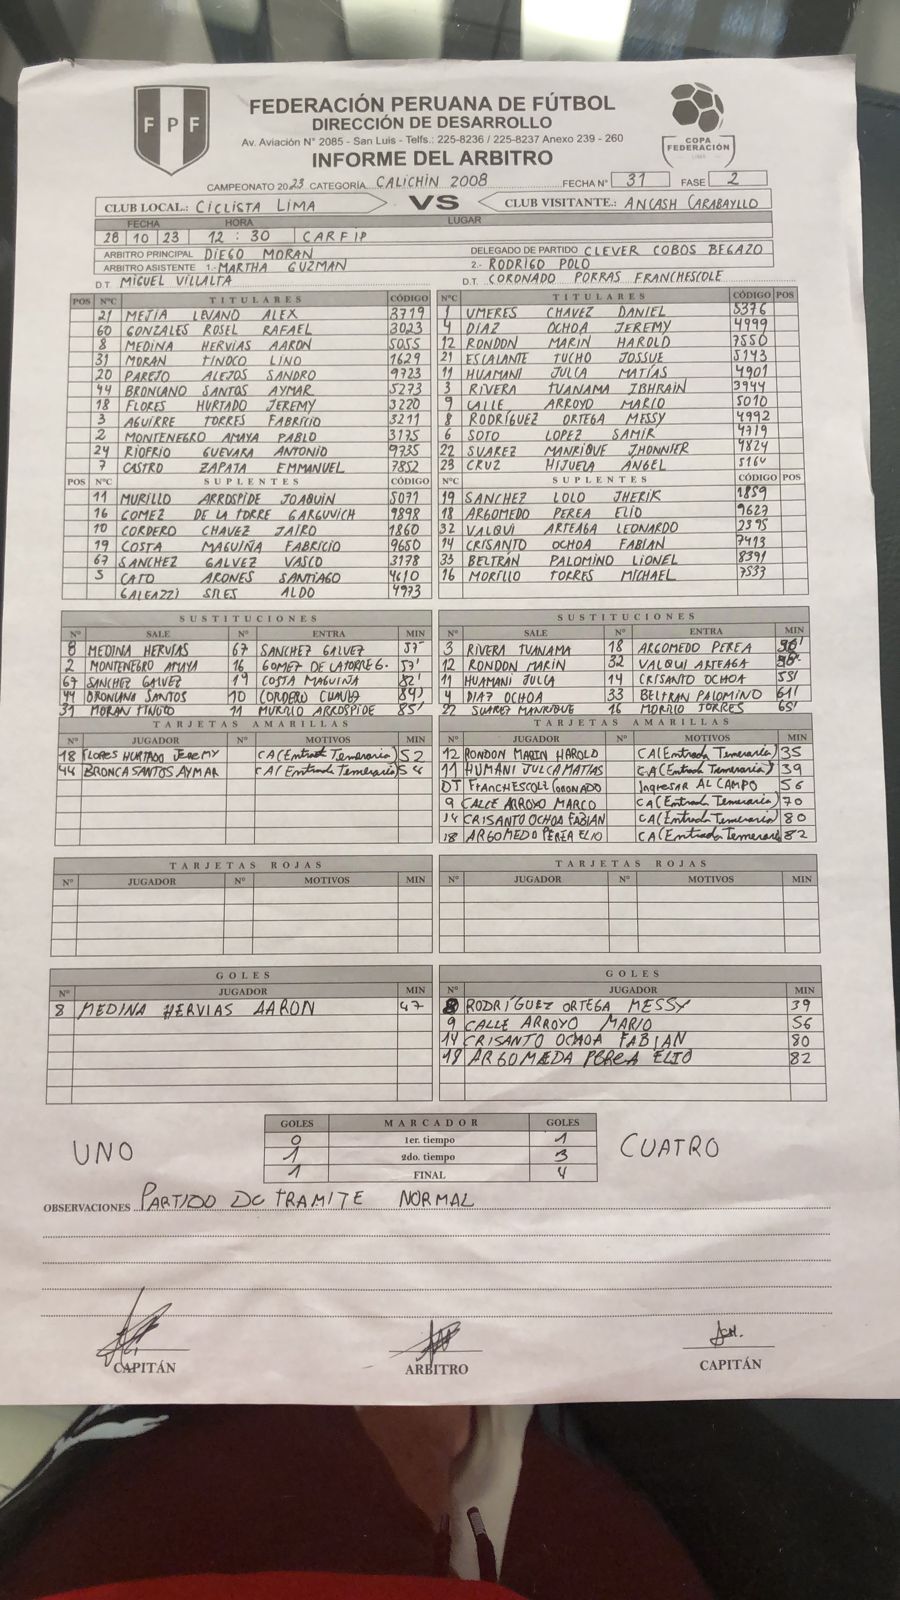 FEDERACIÓN PERUANA DE FÚTBOL
DIRECCIÓN DE DESARROLLO
Av. Aviación N° 2085 - San Luis - Telfs.: 225-8236 / 225-8237 Anexo 239 - 260
INFORME DEL ARBITRO
FPF
COPA FEDERACIÓN
CAMPEONATO 2023 CATEGORÍA CALICHIN 2008 FECHA N° 31 FASE 2
CLUB LOCAL.: CICLISTA LIMA VS CLUB VISITANTE.: ANCASH CARABAYLLO
FECHA HORA LUGAR
28 10 23 12 : 30 CARFIP
ARBITRO PRINCIPAL DIEGO MORAN DELEGADO DE PARTIDO CLEVER COBOS BEGAZO
ARBITRO ASISTENTE 1.- MARTHA GUZMAN 2.- RODRIGO POLO
D.T. MIGUEL VILLALTA D.T. CORONADO PORRAS FRANCHESCOLE
POS N°C TITULARES CÓDIGO N°C TITULARES CÓDIGO POS
21 MEJIA LEVANO ALEX 3719 1 UMERES CHAVEZ DANIEL 5376
60 GONZALES ROSEL RAFAEL 3023 4 DIAZ OCHOA JEREMY 4999
8 MEDINA HERVIAS AARON 5055 12 RONDON MARIN HAROLD 7550
31 MORAN TINOCO LINO 1629 21 ESCALANTE TUCHO JOSSUE 5143
20 PAREJO ALEJOS SANDRO 9723 11 HUAMANI JULCA MATÍAS 4901
44 BRONCANO SANTOS AYMAR 5273 3 RIVERA TUANAMA IBHRAIN 3944
18 FLORES HURTADO JEREMY 3220 9 CALLE ARROYO MARIO 5010
3 AGUIRRE TORRES FABRICIO 3211 8 RODRÍGUEZ ORTEGA MESSY 4992
2 MONTENEGRO AMAYA PABLO 3175 6 SOTO LOPEZ SAMIR 4719
24 RIOFRIO GUEVARA ANTONIO 9735 22 SUAREZ MANRIQUE JHONNIER 4824
7 CASTRO ZAPATA EMMANUEL 7852 23 CRUZ HIJUELA ANGEL 5164
POS N°C SUPLENTES CÓDIGO N°C SUPLENTES CÓDIGO POS
11 MURILLO ARROSPIDE JOAQUIN 5071 19 SANCHEZ LOLO JHERIK 1859
16 GOMEZ DE LA TORRE GARGUVICH 9898 18 ARGOMEDO PEREA ELIO 9627
10 CORDERO CHAVEZ JAIRO 1860 32 VALQUI ARTEAGA LEONARDO 2395
19 COSTA MAGUIÑA FABRICIO 9650 14 CRISANTO OCHOA FABIAN 7413
67 SANCHEZ GALVEZ VASCO 3178 33 BELTRÁN PALOMINO LIONEL 8391
5 CATO ARONES SANTIAGO 4610 16 MORILLO TORRES MICHAEL 7533
GALEAZZI SILES ALDO 4973
SUSTITUCIONES SUSTITUCIONES
N° SALE N° ENTRA MIN N° SALE N° ENTRA MIN
8 MEDINA HERVIAS 67 SANCHEZ GALVEZ 57' 3 RIVERA TUANAMA 18 ARGOMEDO PEREA
2 MONTENEGRO AMAYA 16 GOMEZ DE LA TORRE G. 57' 12 RONDON MARIN 32 VALQUI ARTEAGA
67 SANCHEZ GALVEZ 19 COSTA MAGUIÑA 82' 11 HUAMANI JULCA 14 CRISANTO OCHOA 55'
44 BRONCANO SANTOS 10 CORDERO CHAVEZ 84' 4 DIAZ OCHOA 33 BELTRAN PALOMINO 61'
31 MORAN TINOCO 11 MURILLO ARROSPIDE 85' 22 SUAREZ MANRIQUE 16 MORILLO TORRES 65'
TARJETAS AMARILLAS TARJETAS AMARILLAS
N° JUGADOR MOTIVOS MIN N° JUGADOR MOTIVOS MIN
18 FLORES HURTADO JEREMY CA(Entrada Temeraria) 52 12 RONDON MARIN HAROLD CA(Entrada Temeraria) 35
44 BRONCA SANTOS AYMAR CA(Entrada Temeraria) 54 11 HUMANI JULCA MATIAS CA(Entrada Temeraria) 39
DT FRANCHESCOLE CORONADO Ingresar AL CAMPO 56
9 CALLE ARROYO MARCO CA(Entrada Temeraria) 70
14 CRISANTO OCHOA FABIAN CA(Entrada Temeraria) 80
18 ARGOMEDO PEREA ELIO CA(Entrada Temeraria 82
TARJETAS ROJAS TARJETAS ROJAS
N° JUGADOR N° MOTIVOS MIN N° JUGADOR N° MOTIVOS MIN
GOLES GOLES
N° JUGADOR MIN N° JUGADOR MIN
8 MEDINA HERVIAS AARON 47 8 RODRÍGUEZ ORTEGA MESSY 39
9 CALLE ARROYO MARIO 56
14 CRISANTO OCHOA FABIAN 80
18 ARGOMEDA PEREA ELIO 82
GOLES MARCADOR GOLES
0 1er. tiempo 1
UNO 1 2do. tiempo 3 CUATRO
1 FINAL 4
OBSERVACIONES PARTIDO DE TRAMITE NORMAL
CAPITÁN ARBITRO CAPITÁN